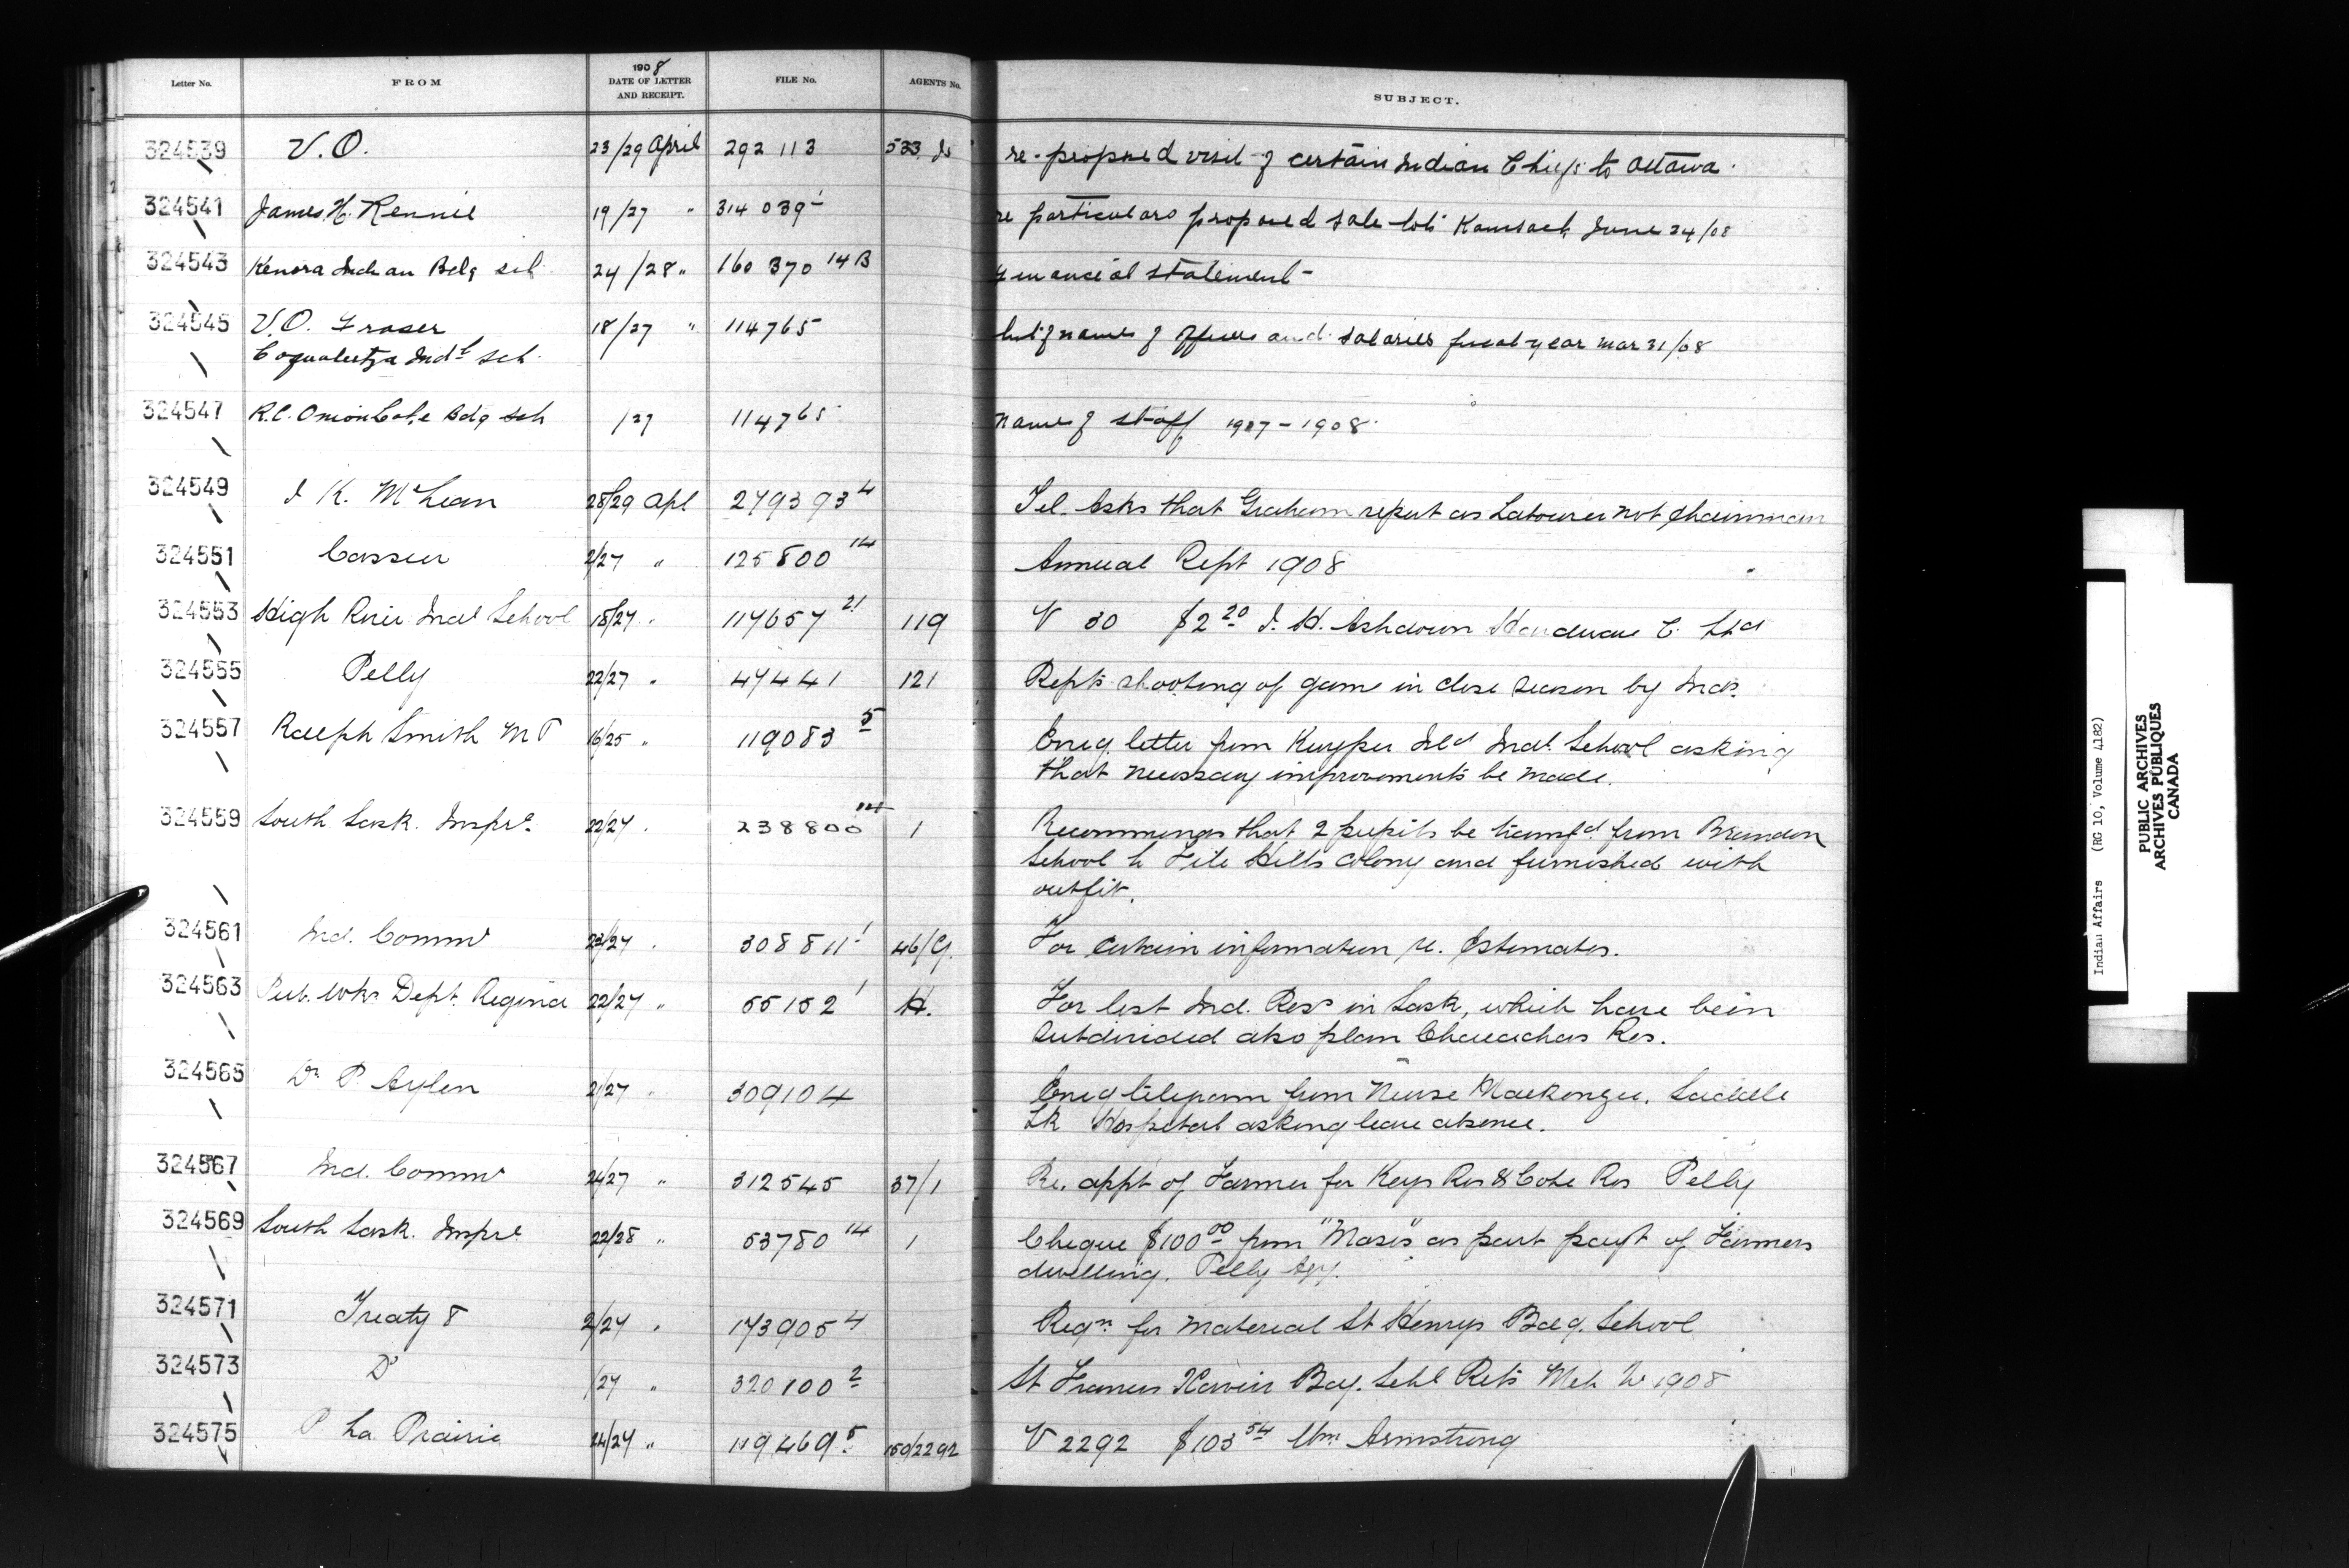 Letter No. FROM 1908 DATE OF LETTER AND RECEIPT. FILE No. AGENTS No. SUBJECT.
324539 V.O. 23/29 April 292 113 533 re- proposed visit of certain Indian Chiefs to Ottawa.
324541 James H. Rennie 19/27 " 314 039 1 re particulars proposed sale lots Kamsack June 24/08
324543 Kenora Indian Bdg sch 24/28 " 160 370 14B Financial statement-
324545 V.O. Fraser 18/27 " 114765 list of names of officers and salaries fiscal year Mar 31/08
Coqualeetza Indl sch.
324547 R.C. Onion Lake Bdg sch /27 114765 names of staff 1907-1908.
324549 J K. McLean 28/29 Apl 279393 4 Tel. Asks that Graham report as Labourer not chainman
324551 Cassier 2/27 " 125800 14 Annual Rept 1908
324553 High River Indl School 18/27 " 117657 21 119 V 30 $2 20 J. H. Ashdown Hardware C. Ltd
324555 Pelly 22/27 " 47441 121 Repts shooting of game in close season by Inds.
324557 Ralph Smith M P 16/25 " 119083 5 Encg. letter from Kuyper Ild Indl. School asking
that necessary improvements be made.
324559 South Sask. Inspre. 22/27 . 238800 1 Recommends that 2 pupils be transfd. from Brandon
School to File Hills colony and furnished with
outfit.
324561 Ind. Commr 23/27 . 308811 1 46/G. For certain information re. Estimates.
324563 Pub. Wks Dept. Regina 22/27 " 55152 1 H. For list Ind. Ress in Sask, which have been
subdivided also plan Res.
324565 Dr. P. Aylen 21/27 " 309104 Encg telegram from Nurse Mackenzie, Saddle
Lk Hospital asking leave absence.
324567 Ind. Commr 24/27 " 312545 37/1 Re. appt of Farmer for Keys Res & Cote Res Pelly
324569 South Sask. Inspre 22/28 " 53780 14 1 Cheque $100 00 from "Moses" as part payt of Farmers
dwelling. Pelly Agy.
324571 Treaty 8 2/27 " 173905 4 Reqn. for material St Henrys Bdg. School
324573 Do /27 " 320100 2 St Francis Xavier Bdg. Schl Rets Mch 1908
324575 P La Prairie 24/27 " 119469 5. 150/2292 V 2292 $103 54 Wm. Armstrong
Indian Affairs (RG 10, Volume 4182)
PUBLIC ARCHIVES
ARCHIVES PUBLIQUES
CANADA